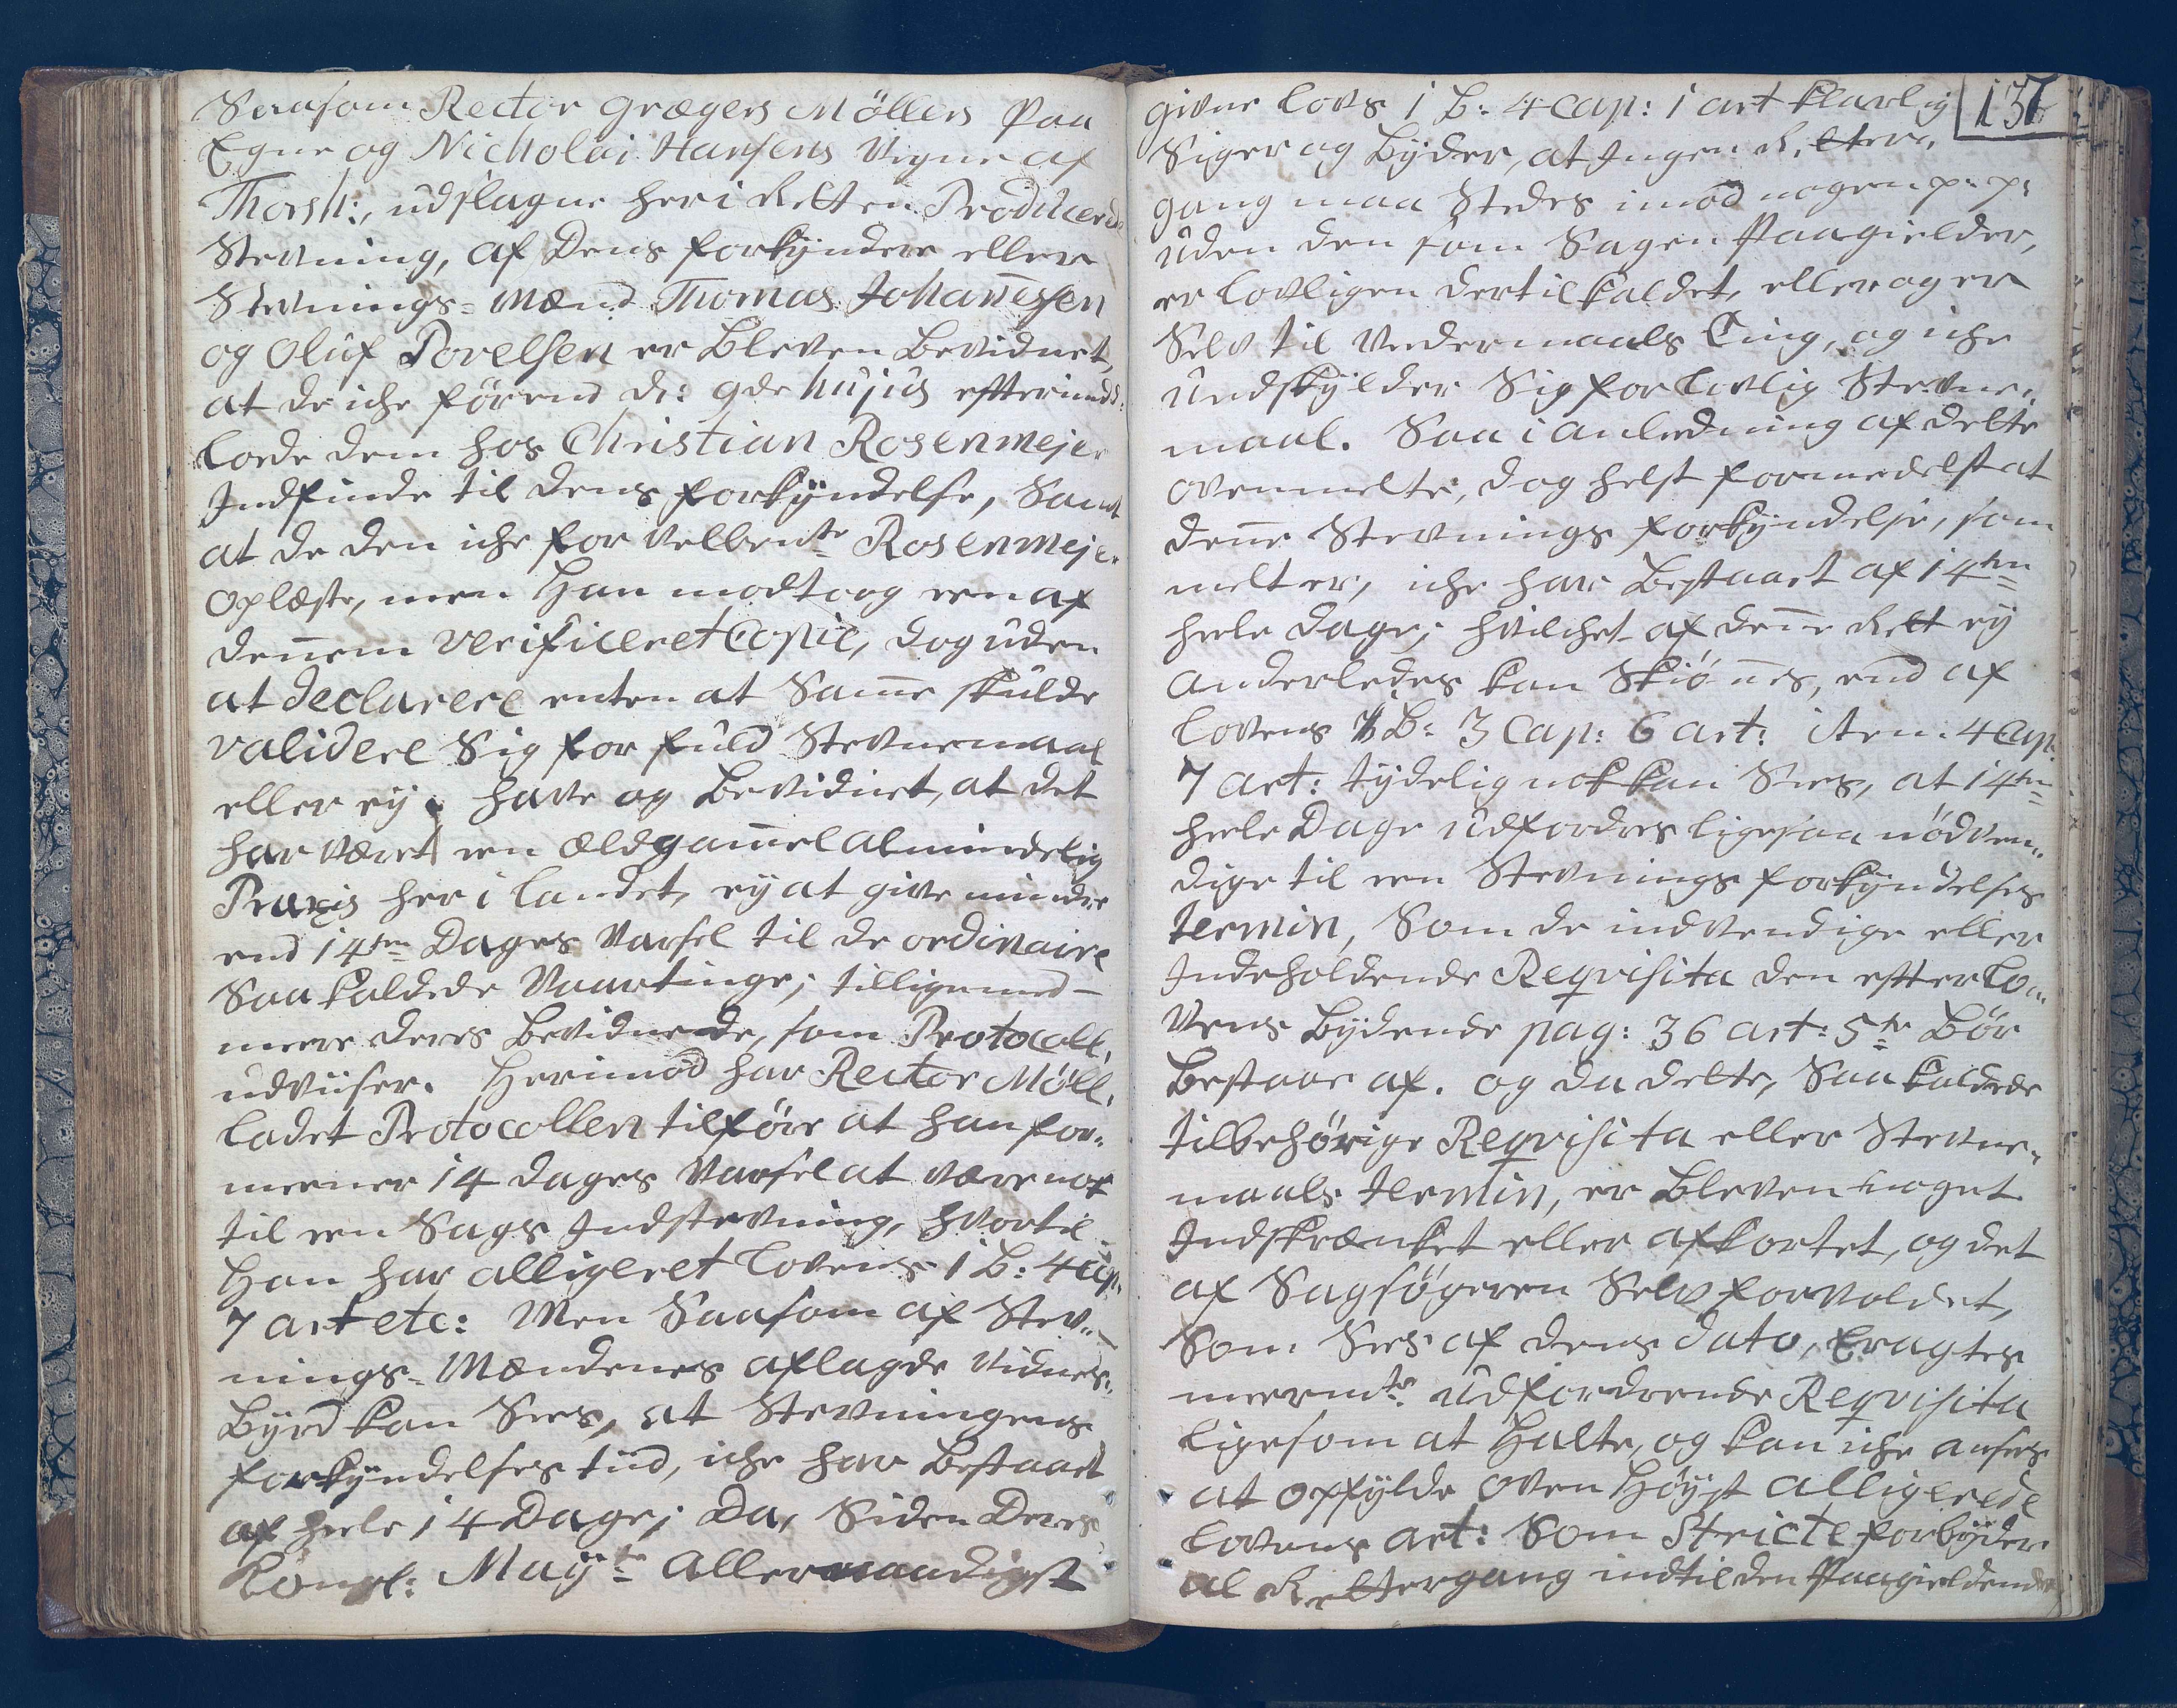 Saasom Rector Grægers Möllers Paa
Egne og Nicholai Hansens Vegne af
Thorsh:, udslagne her i Retten Producerede
Stevning, af Dens forkyndere eller
Stevnings-Mænd Thomas Johannesen
og Oluf Povelsen er bleven bevidnet,
at de iche förend d: 9de hujus efterindd:
lode dem hos Christian Rosenmejer
Indfinde til dens forkyndelse, Samt
at de den iche for velbente Rosenmejer
Oplæste, men Han modtoog een af
dennem verificeret Copie, dog uden
at declarere enten at Samme skulde
validere Sig for fuld Stevnemaal
eller ey. have og bevidnet, at det
har været een ældgammel almindelig
Praxis her i landet, ey at give mindre
end 14ten Dages Varsel til de ordinaire
Saa kaldede Vaartinge; tilligemed
meere deres bevidnede, som Protocoll.
udviiser. Herimod har Rector Möll.
ladet Protocollen tilföre at han for-
meener 14 dages Varsel at være nok
til een Sags Indstevning, hvortil
Han har alligeret Lovens 1 B: 4 Cap:
7 art etc: Men Saasom af Stev-
nings-Mændenes aflagde Vidnes-
byrd kan Sees, at Stevningens
forkyndelses tiid, iche har bestaaet
af heele 14 Dage; Da, Siden Deres
Kongl: Mayts Allernaadigst
137
givne Lovs 1 B: 4 Cap: 1 art klarlig
Siger og byder, at Ingen Retter-
gang maa Stedes imod nogen p: p:
uden den som Sagen Paagielder,
er lovligen dertil kaldet, eller og er
Selv til vedermaals Ting, og iche
undskylder Sig for lovlig Stevne-
maal. Saa i anledning af dette
ovenmelte, dog helst formedelst at
denne Stevnings forkyndelse, som
melt er, iche har bestaaet af 14ten
heele dage; hvilchet af denne Rett ey
anderledes kan Skiönnes, end af
Lovens 1 B: 3 Cap: 6 art: item 4 Cap:
7 art: tydelig nok kan Sees, at 14ten
heele Dage udfordres ligesaa nödven-
dige til een Stevnings forkyndelses
termin, Som de indvendige eller
Indeholdende Reqvisita den efter Lo-
vens bydende pag: 36 art: 5te bör
bestaae af. og da dette, Saa kaldede
tilbehörige Reqvisita eller Stevne-
maals termin, er bleven noget
Indskrænket eller afkortet, og det
af Sagsögeren Selv forvoldet,
Som Sees af dens dato, Eragtes
meermte udfordrende Reqvisita
ligesom at Halte, og kan iche ansees
at opfylde oven Höyst alligerede
Lovens art: Som Stricte forbyder
al Rettergang indtil den Paagieldende